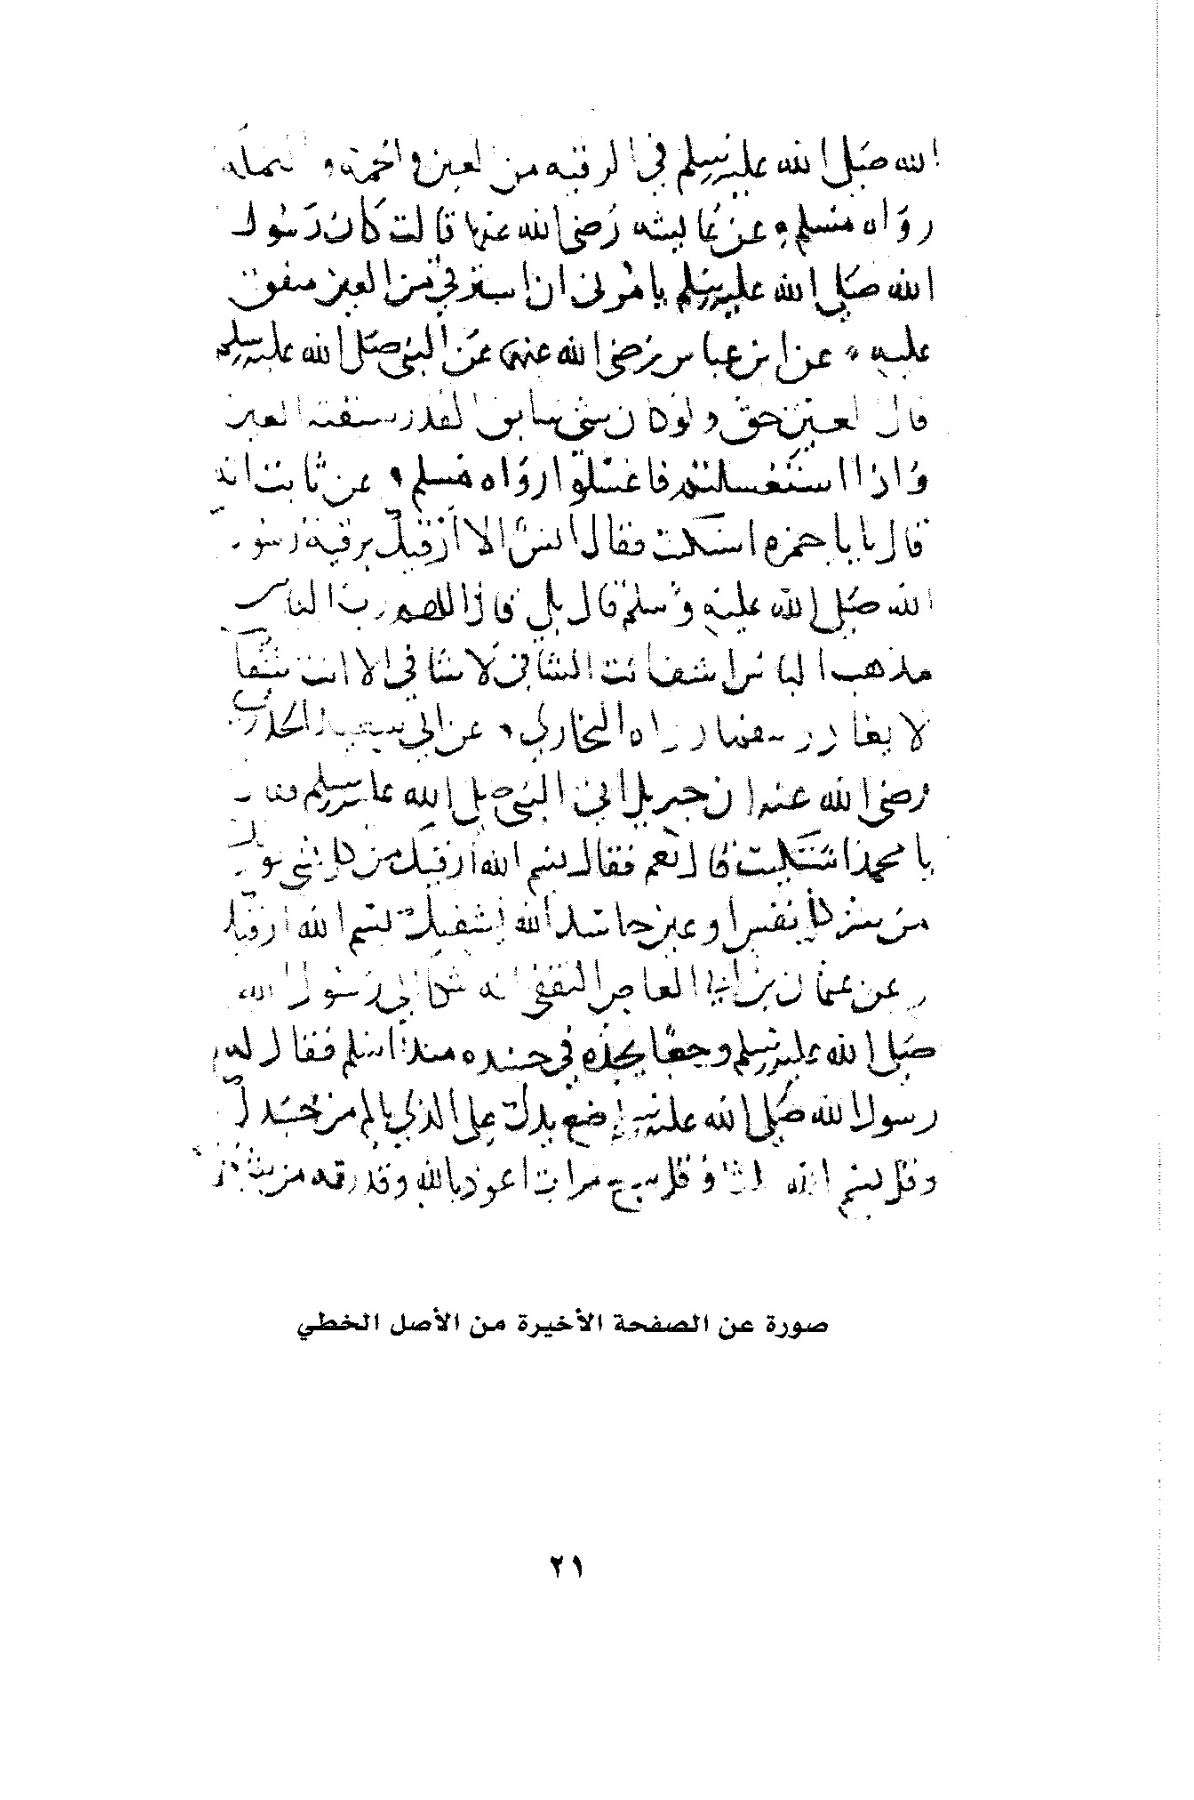 الله صلى الله عليه وسلم في الرقيه من العين والحمة والنملة
رواه مسلم عن عايشه رضى الله عنها قالت كان رسول
الله صلى الله عليه وسلم يامرنى ان استرقي من العين متفق
عليه عن ابن عباس رضى الله عنهما عن النبى صلى الله عليه وسلم
قال العين حق ولو كان شي سابق القدر سبقته العين
واذا استغسلتم فاغسلوا رواه مسلم عن ثابت انه
قال يا باحمزه اشتكيت فقال انس الا ارقيك برقية رسول
الله صلى الله عليه وسلم قال بلى قال اللهم رب الناس
مذهب الباس اشف انت الشافى لا شافي الا انت شفآ
لا يغادر سقما رواه البخاري عن ابي سعيد الخدري
رضى الله عنه ان جبريل اتى النبى صلى الله عليه وسلم فقال
يا محمد اشتكيت قال نعم فقال بسم الله ارقيك من كل شي يوذيك
من شر كل نفس او عين حاسد الله يشفيك بسم الله ارقيك
عن عثمان بن ابي العاص الثقفي انه شكا الى رسول الله
صلى الله عليه وسلم وجعا يجده في جسده منذ اسلم فقال له
رسول الله صلى الله عليه وسلم ضع يدك على الذي يالم من جسدك
وقل بسم الله ثلثا وقل سبع مرات اعوذ بالله وقدرته من شر
صورة عن الصفحة الأخيرة من الأصل الخطي
٢١